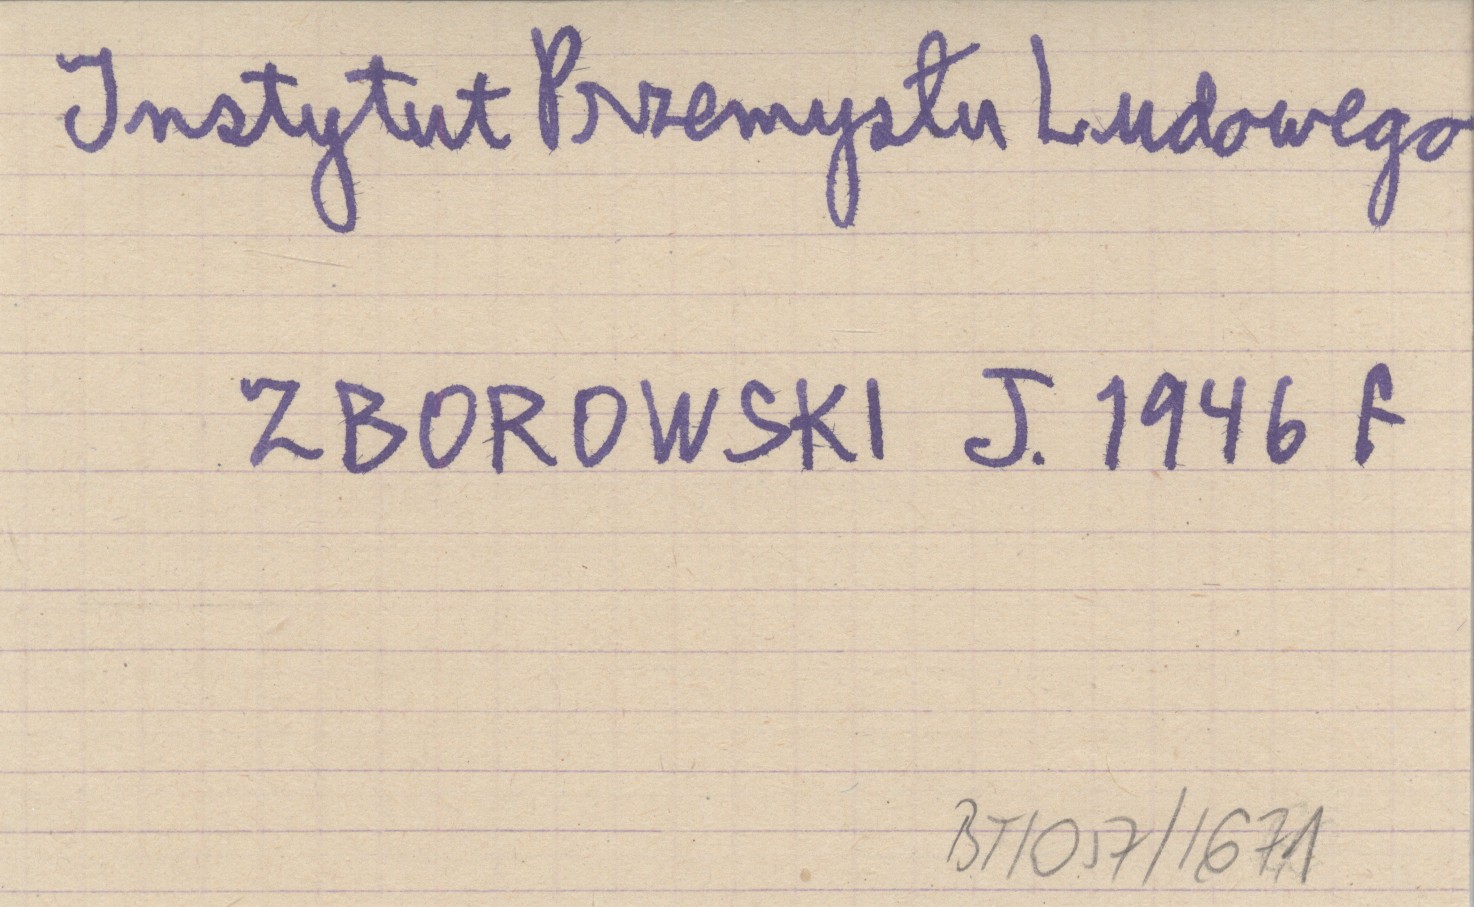 Instytut Przemysłu Ludowego
ZBOROWSKI J. 1946 F
BT/057/1671